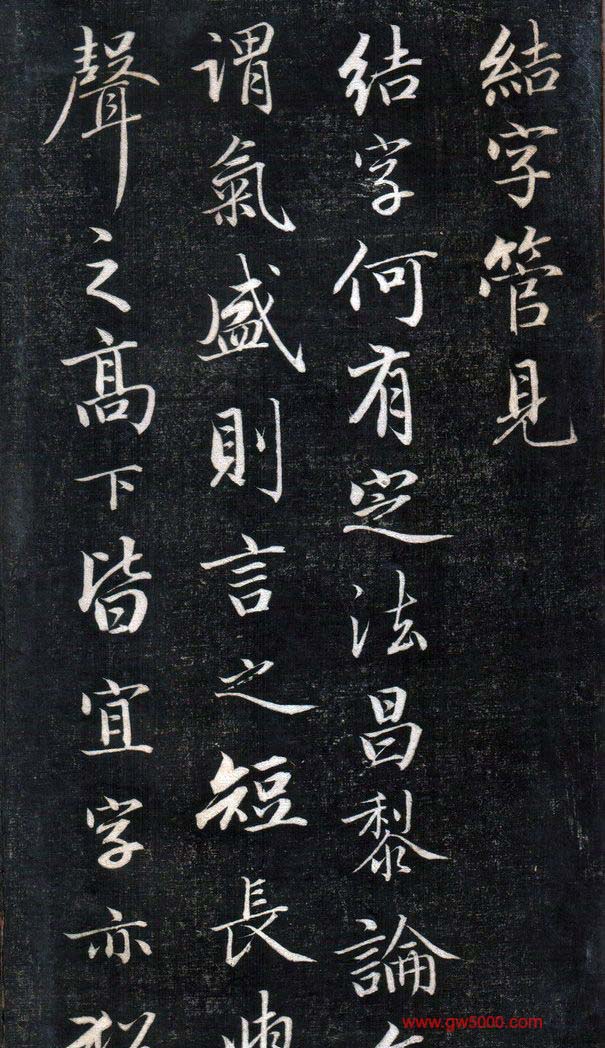 結字管見
結字何有定法昌黎論
謂氣盛則言之短長
聲之高下皆宜字亦
www.gw5000.com